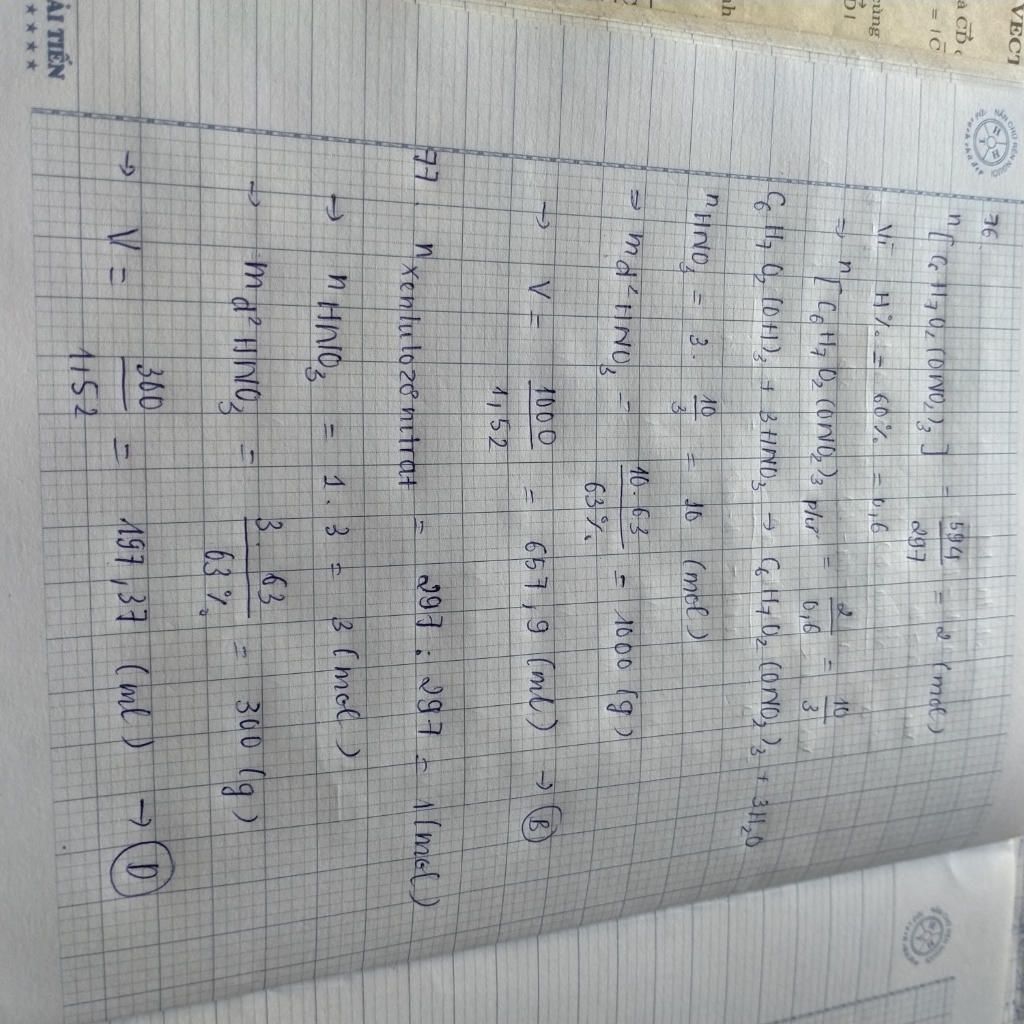 VECT
a CD
= |C
cùng
D |
nh
NÂNG CHỮ NÊN NGƯỜI
76.
n[C6H7O2(ONO2)3] = 594/297 = 2 (mol)
Vì H% = 60% = 0,6
⇒ n[C6H7O2(ONO2)3 pứ = 2/0,6 = 10/3
C6H7O2(OH)3 + 3HNO3 → C6H7O2(ONO2)3 + 3H2O
nHNO3 = 3. 10/3 = 10 (mol)
⇒ md² HNO3 = 10.63/63% = 1000 (g)
→ V = 1000/1,52 = 657,9 (ml) → B
77. n xenlulozơ nitrat = 297 : 297 = 1 (mol)
→ nHNO3 = 1.3 = 3 (mol)
→ md² HNO3 = 3.63/63% = 300 (g)
→ V = 300/1,52 = 197,37 (ml) → D
ẢI TIẾN
★★★★★